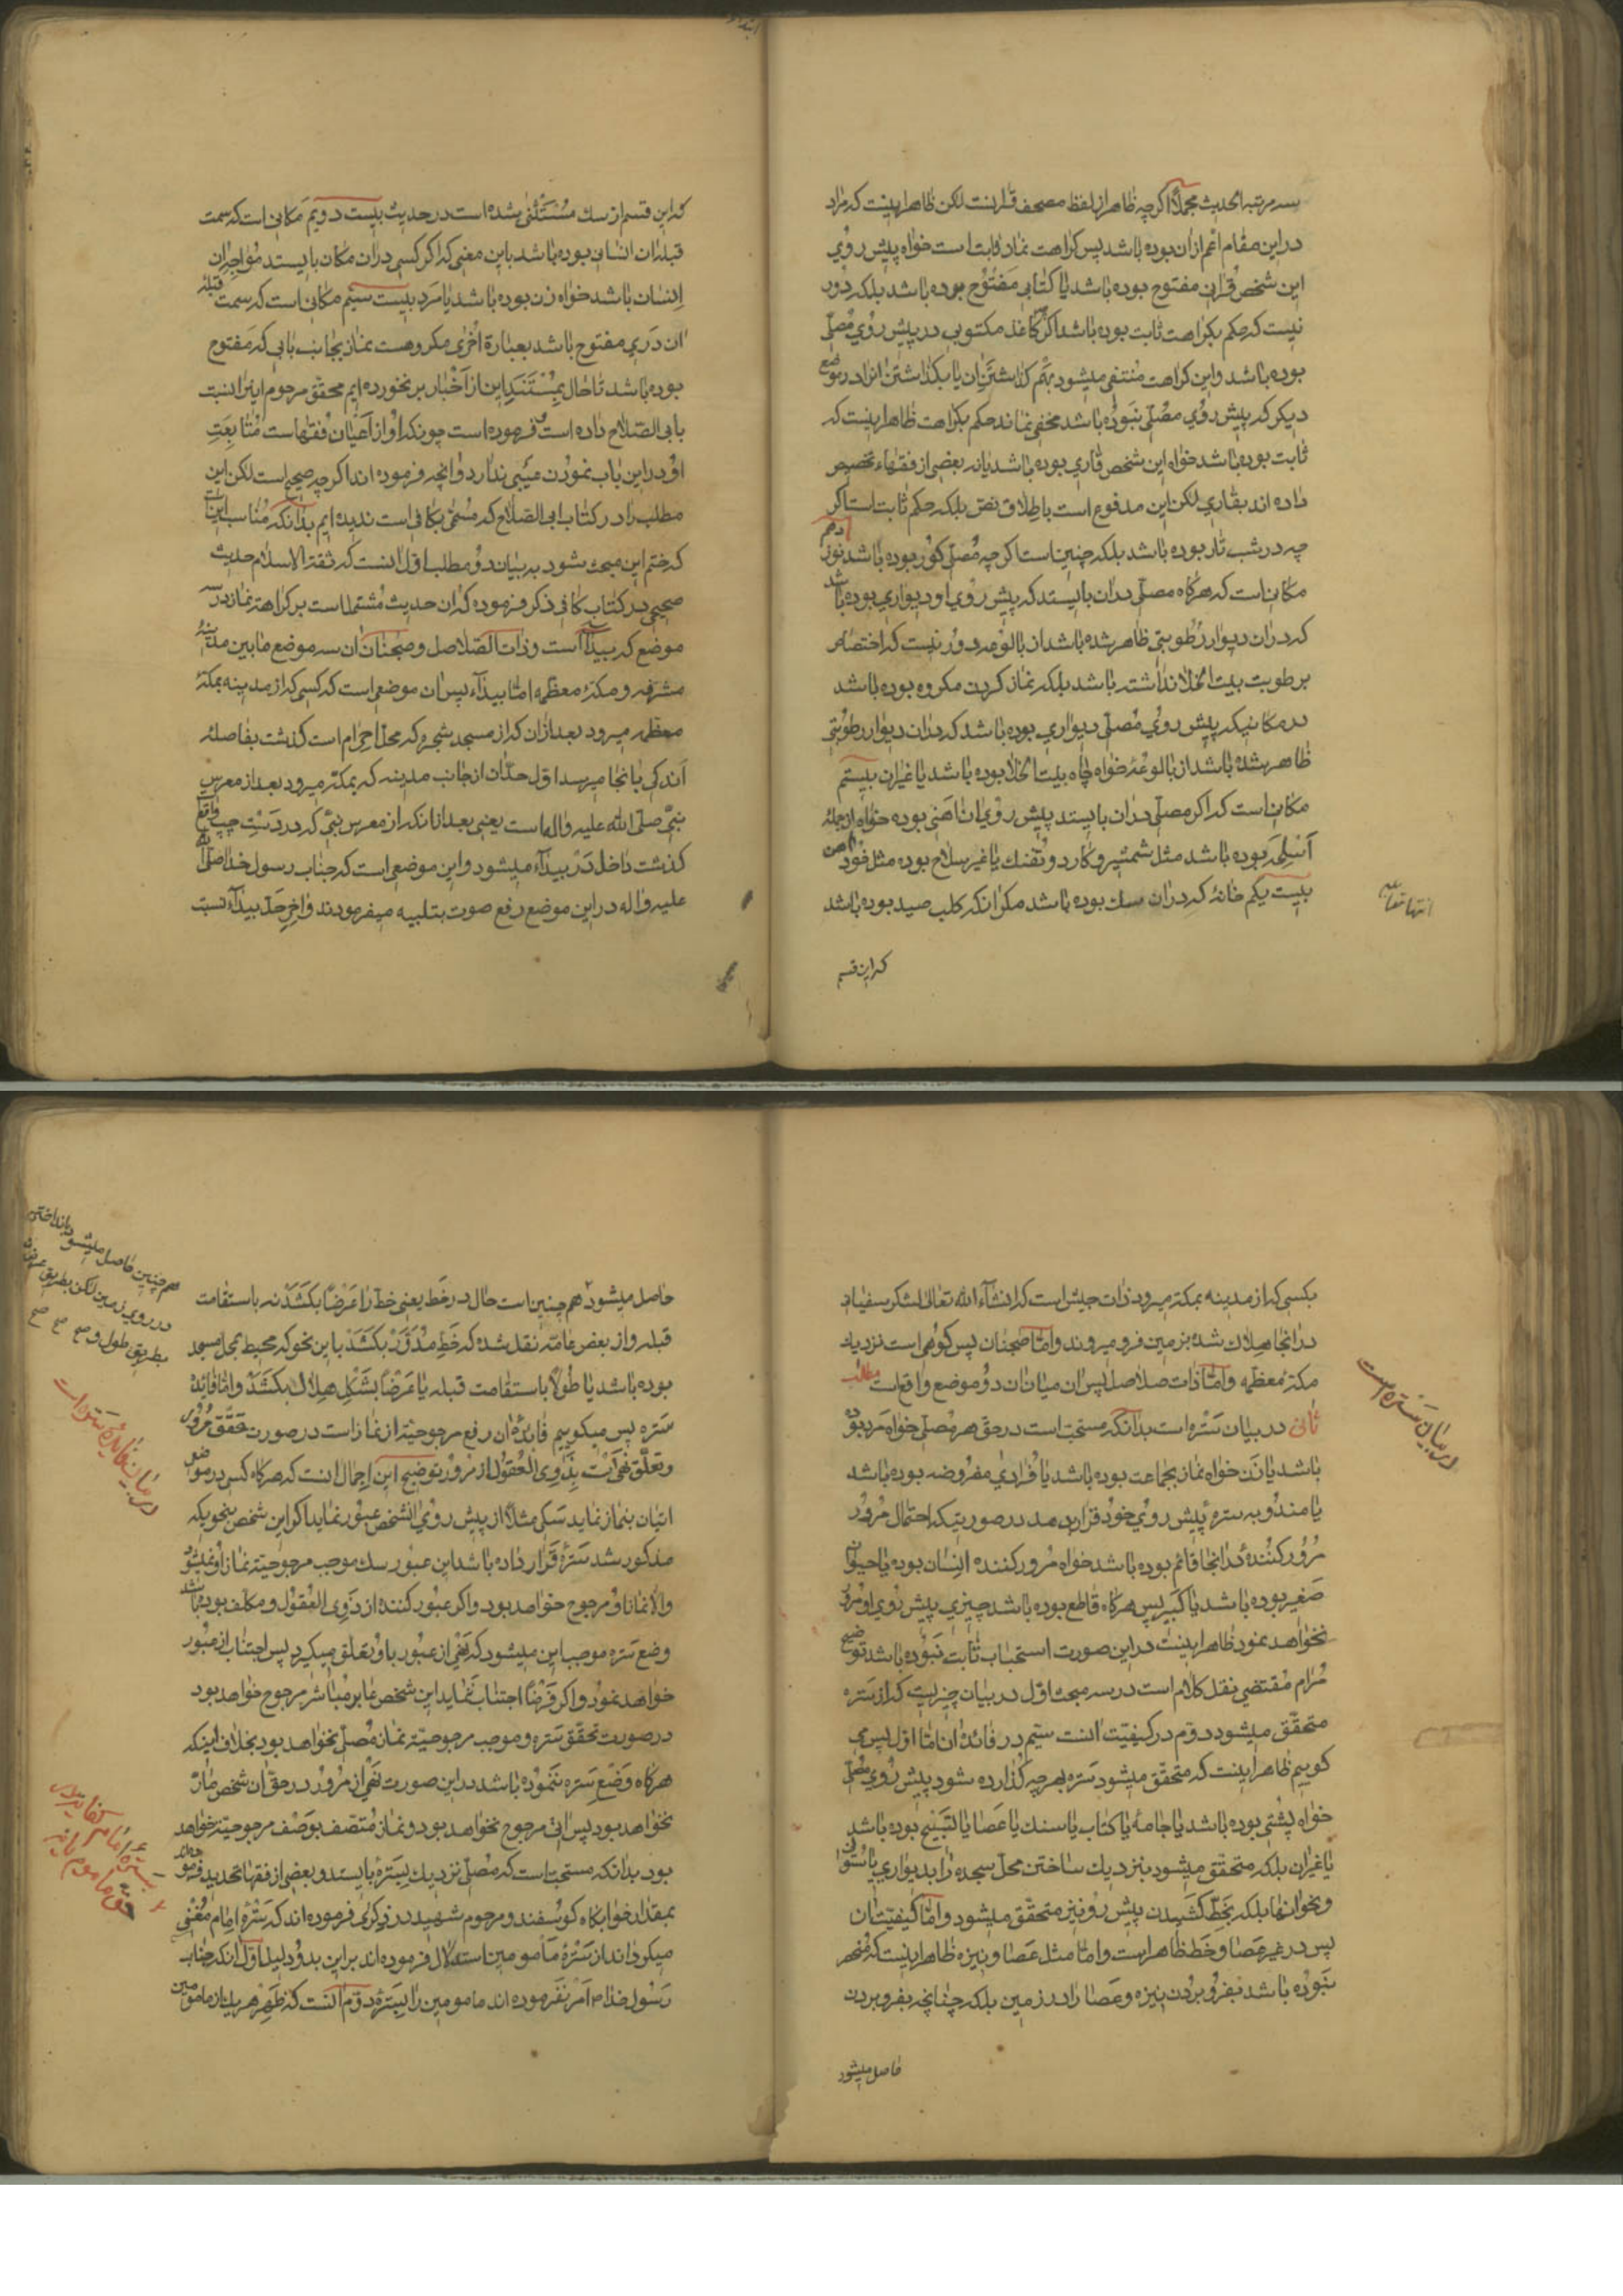 سه مرتبه الحدیث مجملاً اگرچه ظاهر از لفظ مصحف قرانست لکن ظاهر اینست که مراد
در این مقام اعم از ان بوده باشد پس کراهت نماز ثابت است خواه پیش روی
این شخص قرانی مفتوح بوده باشد یا کتابی مفتوح بوده باشد بلکه دور
نیست که حکم بکراهت ثابت بوده باشد اگر کاغذ مکتوبی در پیش روی مصلّی
بوده باشد و این کراهت منتفی میشود بهم گذاشتن ان یا بگذاشتن انرا در موضع
دیگر که پیش روی مصلّی نبوده باشد مخفی نماند حکم بکراهت ظاهر اینست که
ثابت بوده باشد خواه این شخص قاری بوده باشد یا نه بعضی از فقهاء تخصیص
داده اند بقاری لکن این مدفوع است باطلاق نص بلکه حکم ثابت است اگر
چه در شب تار بوده باشد بلکه چنین است اگر چه مصلّی کور بوده باشد نوزدهم
مکانی است که هرگاه مصلّی در ان بایستد که پیش روی او دیواری بوده باشد
که در ان دیوار رطوبتی ظاهر شده باشد از بالوعه و دور نیست که اختصاص
برطوبت بیت الخلا نداشته باشد بلکه نماز کردن مکروه بوده باشد
در مکانیکه پیش روی مصلّی دیواری بوده باشد که در ان دیوار رطوبتی
ظاهر شده باشد از بالوعه خواه چاه بیت الخلا بوده باشد یا غیر ان بیستم
مکانی است که اگر مصلّی در ان بایستد پیش روی ان اهنی بوده خواه از جمله
اسلحه بوده باشد مثل شمشیر و کارد و تفنک یا غیر سلاح بوده مثل خود اهن
بیست یکم خانهٔ که در ان سک بوده باشد مگر انکه کلب صید بوده باشد
که این قسم
که این قسم از سك مستثنی شده است در حدیث بیست دویم مکانی است که سمت
قبله ان انسانی بوده باشد باین معنی که اگر کسی در ان مکان بایستد مواجه ان
انسان باشد خواه زن بوده باشد یا مرد بیست سیم مکانی است که سمت قبله
ان دری مفتوح باشد بعبارة اخری مکروهست نماز بجانب بابی که مفتوح
بوده باشد تا حال بمستند این از اخبار بر نخورده ایم محقق مرحوم اینرا نسبت
بابی الصلاح داده است و فرموده است چونکه او از اعیان فقهاست متابعت
او در این باب نمودن عیبی ندارد و انچه فرموده اند اگر چه صحیح است لکن این
مطلب را در کتاب ابی الصلاح که مسمّی بکافی است ندیده ایم بدانکه مناسب اینست
که ختم این مبحث شود به بیان دو مطلب اول انست که ثقة الاسلام حدیث
صحیحی در کتاب کافی ذکر فرموده که ان حدیث مشتملست بر کراهت نماز در سه
موضع که بیدآ است و ذات الصلاصل و ضجنان ان سه موضع مابین مدینهٔ
مشرفه و مکهٔ معظمه امّا بیدآء پس ان موضعی است که کسی که از مدینه بمکهٔ
معظمه میرود بعد از ان که از مسجد شجره که محل احرام است گذشت بفاصلهٔ
اندکی بانجا میرسد اول حدّ ان از جانب مدینه که بمکه میرود بعد از معرس
نبی صلّی الله علیه و اله است یعنی بعد از انکه از معرس نبی که در دست چپ واقع
گذشت داخل در بیدآء میشود و این موضعی است که جناب رسول خدا صلّی الله
علیه و اله در این موضع رفع صوت بتلبیه میفرمودند و اخر حدّ بیدآء نسبت
بکسی که از مدینه بمکه میرود ذات جیش است که انشآء الله تعالی لشکر سفیانی
در انجا هلاك شده بزمین فرو میروند و امّا ضجنان پس کوهی است نزدیك
مکهٔ معظمه و امّا ذات صلاصل پس ان میان ان دو موضع واقع است مطلب
ثانی در بیان ستره است بدانکه مستحبّ است در حق هر مصلّی خواه مرد بوده
باشد یا زن خواه نماز بجماعت بوده باشد یا فرادی مفروضه بوده باشد
یا مندوبه سترهٔ پیش روی خود قرار بدهد در صورتیکه احتمال مرور
مرور کنندهٔ در انجا قائم بوده باشد خواه مرور کننده انسان بوده یا حیوان
صغیر بوده باشد یا کبیر پس هرگاه قاطع بوده باشد چیزی پیش روی او مرور
نخواهد نمود ظاهر اینست در این صورت استحباب ثابت نبوده باشد توضیح
مرام مقتضی نقل کلام است در سه مبحث اول در بیان چیزیست که از ستره
متحقق میشود دوّم در کیفیّت انست سیّم در فائدهٔ ان امّا اول پس می
کوییم ظاهر اینست که متحقق میشود ستره بهر چه گذارده شود پیش روی مصلّی
خواه پشتی بوده باشد یا جامهٔ یا کتاب یا سنك یا عصا یا تسبیح بوده باشد
یا غیر ان بلکه متحقق میشود بنزدیك ساختن محل سجده را بدیواری یا ستون
و نحو انها بلکه بخطّ کشیدن پیش رو نیز متحقق میشود و امّا کیفیّت ان
پس در غیر عصا و خط ظاهر است و امّا مثل عصا و نیزه ظاهر اینست که منحصر
نبوده باشد بفرو بردن نیزه و عصا را در زمین بلکه چنانچه بفرو بردن
حاصل میشود
در بیان ستره است
حاصل میشود هم چنین است حال در خط یعنی خط را عرضاً بکشد نه باستقامت
قبله و از بعض عامّه نقل شده که خط مدوّر بکشد باین نحو که محیط بمحل مسجد
بوده باشد یا طولاً باستقامت قبله یا عرضاً بشکل هلال بکشد و امّا فائدهٔ
ستره پس میکوییم فائدهٔ ان رفع مرجوحیّة از نماز است در صورت تحقق مرور
و تعلّق نهی است بذوی العقول از مرور توضیح این اجمال اینست که هرگاه کسی در موضعی
اتیان بنماز نماید سکی مثلاً از پیش روی انشخص عبور نماید اگر این شخص بنحویکه
مذکور شد سترهٔ قرار داده باشد این عبور سك موجب مرجوحیّة نماز او نمیشود
والّا نماز او مرجوح خواهد بود و اگر عبور کننده از ذوی العقول و مکلّف بوده باشد
وضع ستره موجب این میشود که نهی از عبور باو تعلّق میگیرد پس اجتناب از عبور
خواهد نمود و اگر فرضاً اجتناب ننماید این شخص عابر مباشر مرجوح خواهد بود
در صورت تحقق ستره و موجب مرجوحیّة نماز مصلّی نخواهد بود بخلاف اینکه
هرگاه وضع ستره ننموده باشد در این صورت نهی از مرور در حق ان شخص مارّ
نخواهد بود پس اتی مرجوح نخواهد بود و نماز متّصف بوصف مرجوحیّة خواهد
بود بدانکه مستحبّ است که مصلّی نزدیك بسترهٔ بایستد و بعضی از فقها تحدید فرموده اند
بمقدار خوابگاه کوسفند و مرحوم شهید در ذکری فرموده اند که سترهٔ امام مغنی
میکرداند از سترهٔ مامومین استدلال فرموده اند بر این بدو دلیل اول انکه جناب
رسول خدا م امر نفرموده اند مامومین را بسترهٔ دوّم انست که ظهر هر یك از مامومین
هم چنین حاصل میشود بانداختن
در روی زمین لکن بطریق عرض نه
بطریق طول و صح صح صح
در بیان فائدهٔ ستره است